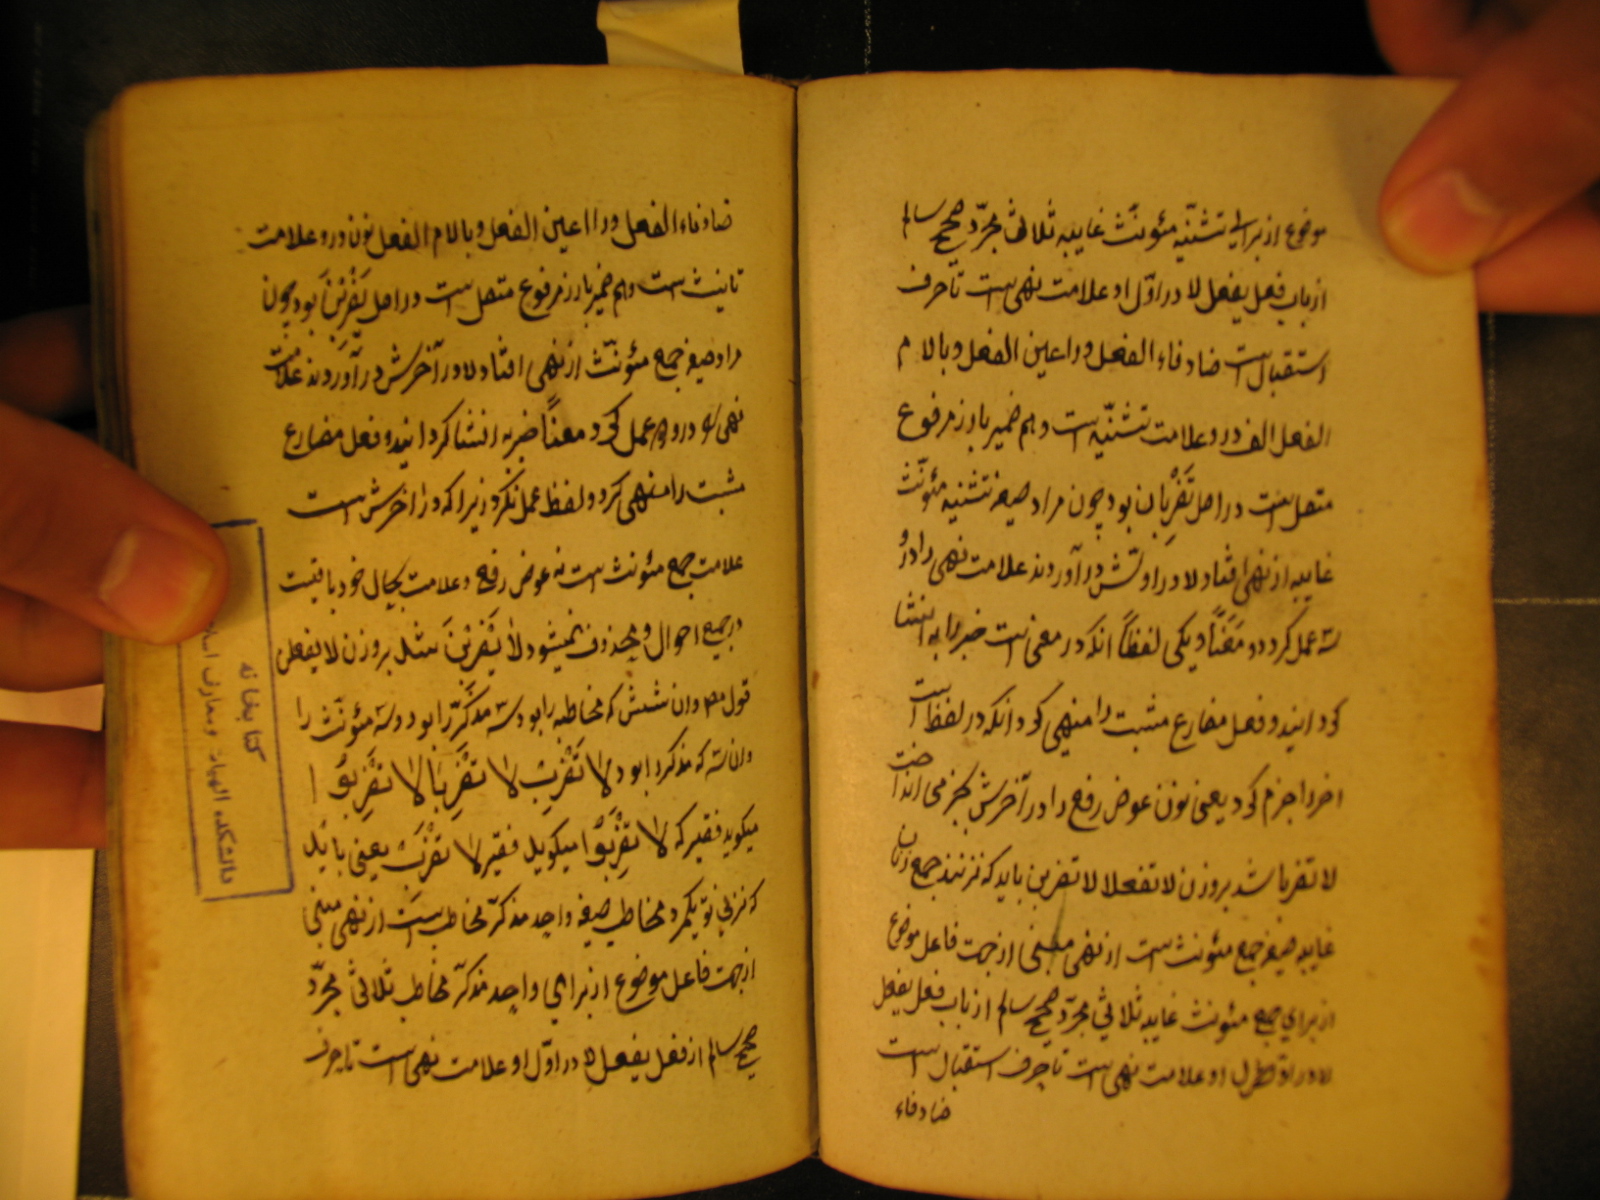 موضوع از برای تثنیه مؤنث غایبه ثلاثی مجرّد صحیح سالم
از باب فعل یفعل لا در اوّل او علامت نهی است تا حرف
استقبال است ضاد فاء الفعل و را عین الفعل و با لام
الفعل الف در و علامت تثنیّه است و هم ضمیر بارز مرفوع
متصل است در اصل تَضْرِبان بود چون مراد صیغه تثنیه مؤنّث
غایبه از نهی افتاد لا در اولش در آوردند علامت نهی را در و
سه عمل کرد دو معنًا و یکی لفظاً انکه در معنی است خبر را به انشا
کردانید و فعل مضارع مثبت را منهی کرد و انکه در لفظ است
اخر را جزم کرد یعنی نون عوض رفع را در آخرش بجزمی انداخت
لا تضربا شد بر وزن لا تفعلا لا تضربن باید که نزنند جمع زنان
غایبه صیغه جمع مؤنث است از نهی مبنی از جهت فاعل موضوع
از برای جمع مؤنث غایبه ثلاثی مجرّد صحیح سالم از باب فعل یفعل
لا در اوّل او علامت نهی است تا حرف استقبال است
ضاد فاء
ضاد فاء الفعل و را عین الفعل و با لام الفعل نون در و علامت
تانیث است و هم ضمیر بارز مرفوع متصل است در اصل یَضْرِبْنَ بود چون
مراد صیغه جمع مؤنّث از نهی افتاد لا در آخرش در آوردند علامت
نهی در و عمل کرد معناً خبر به انشا کردانید و فعل مضارع
مثبت را منهی کرد و لفظ عمل نکرد زیرا که در اخرش است
علامت جمع مؤنث است نه عوض رفع و علامت بحال خود باقیست
در جمیع احوال و محذوف نمیشود لا تَضْرِبْنَ شد بر وزن لا یفعلن
قول مص و ان شش که مخاطبه را بود سه مذکّر را بود و سه مؤنّث را
و ان سه که مذکر را بود لا تَضْرِبْ لا تَضْرِبَا لا تَضْرِبُوا
میکوید فقیر که لا تَضْرِبُوا میکوید فقیر لا تضْرِبْ یعنی باید
که نزنی تو یکمرد مخاطب صیغه واحد مذکّر مخاطب است از نهی مبنی
از جهت فاعل موضوع از برای واحد مذکّر مخاطب ثلاثی مجرّد
صحیح سالم از فعل یفعل لا در اوّل او علامت نهی است تا حرف
کتابخانه
دانشکده الهیات و معارف